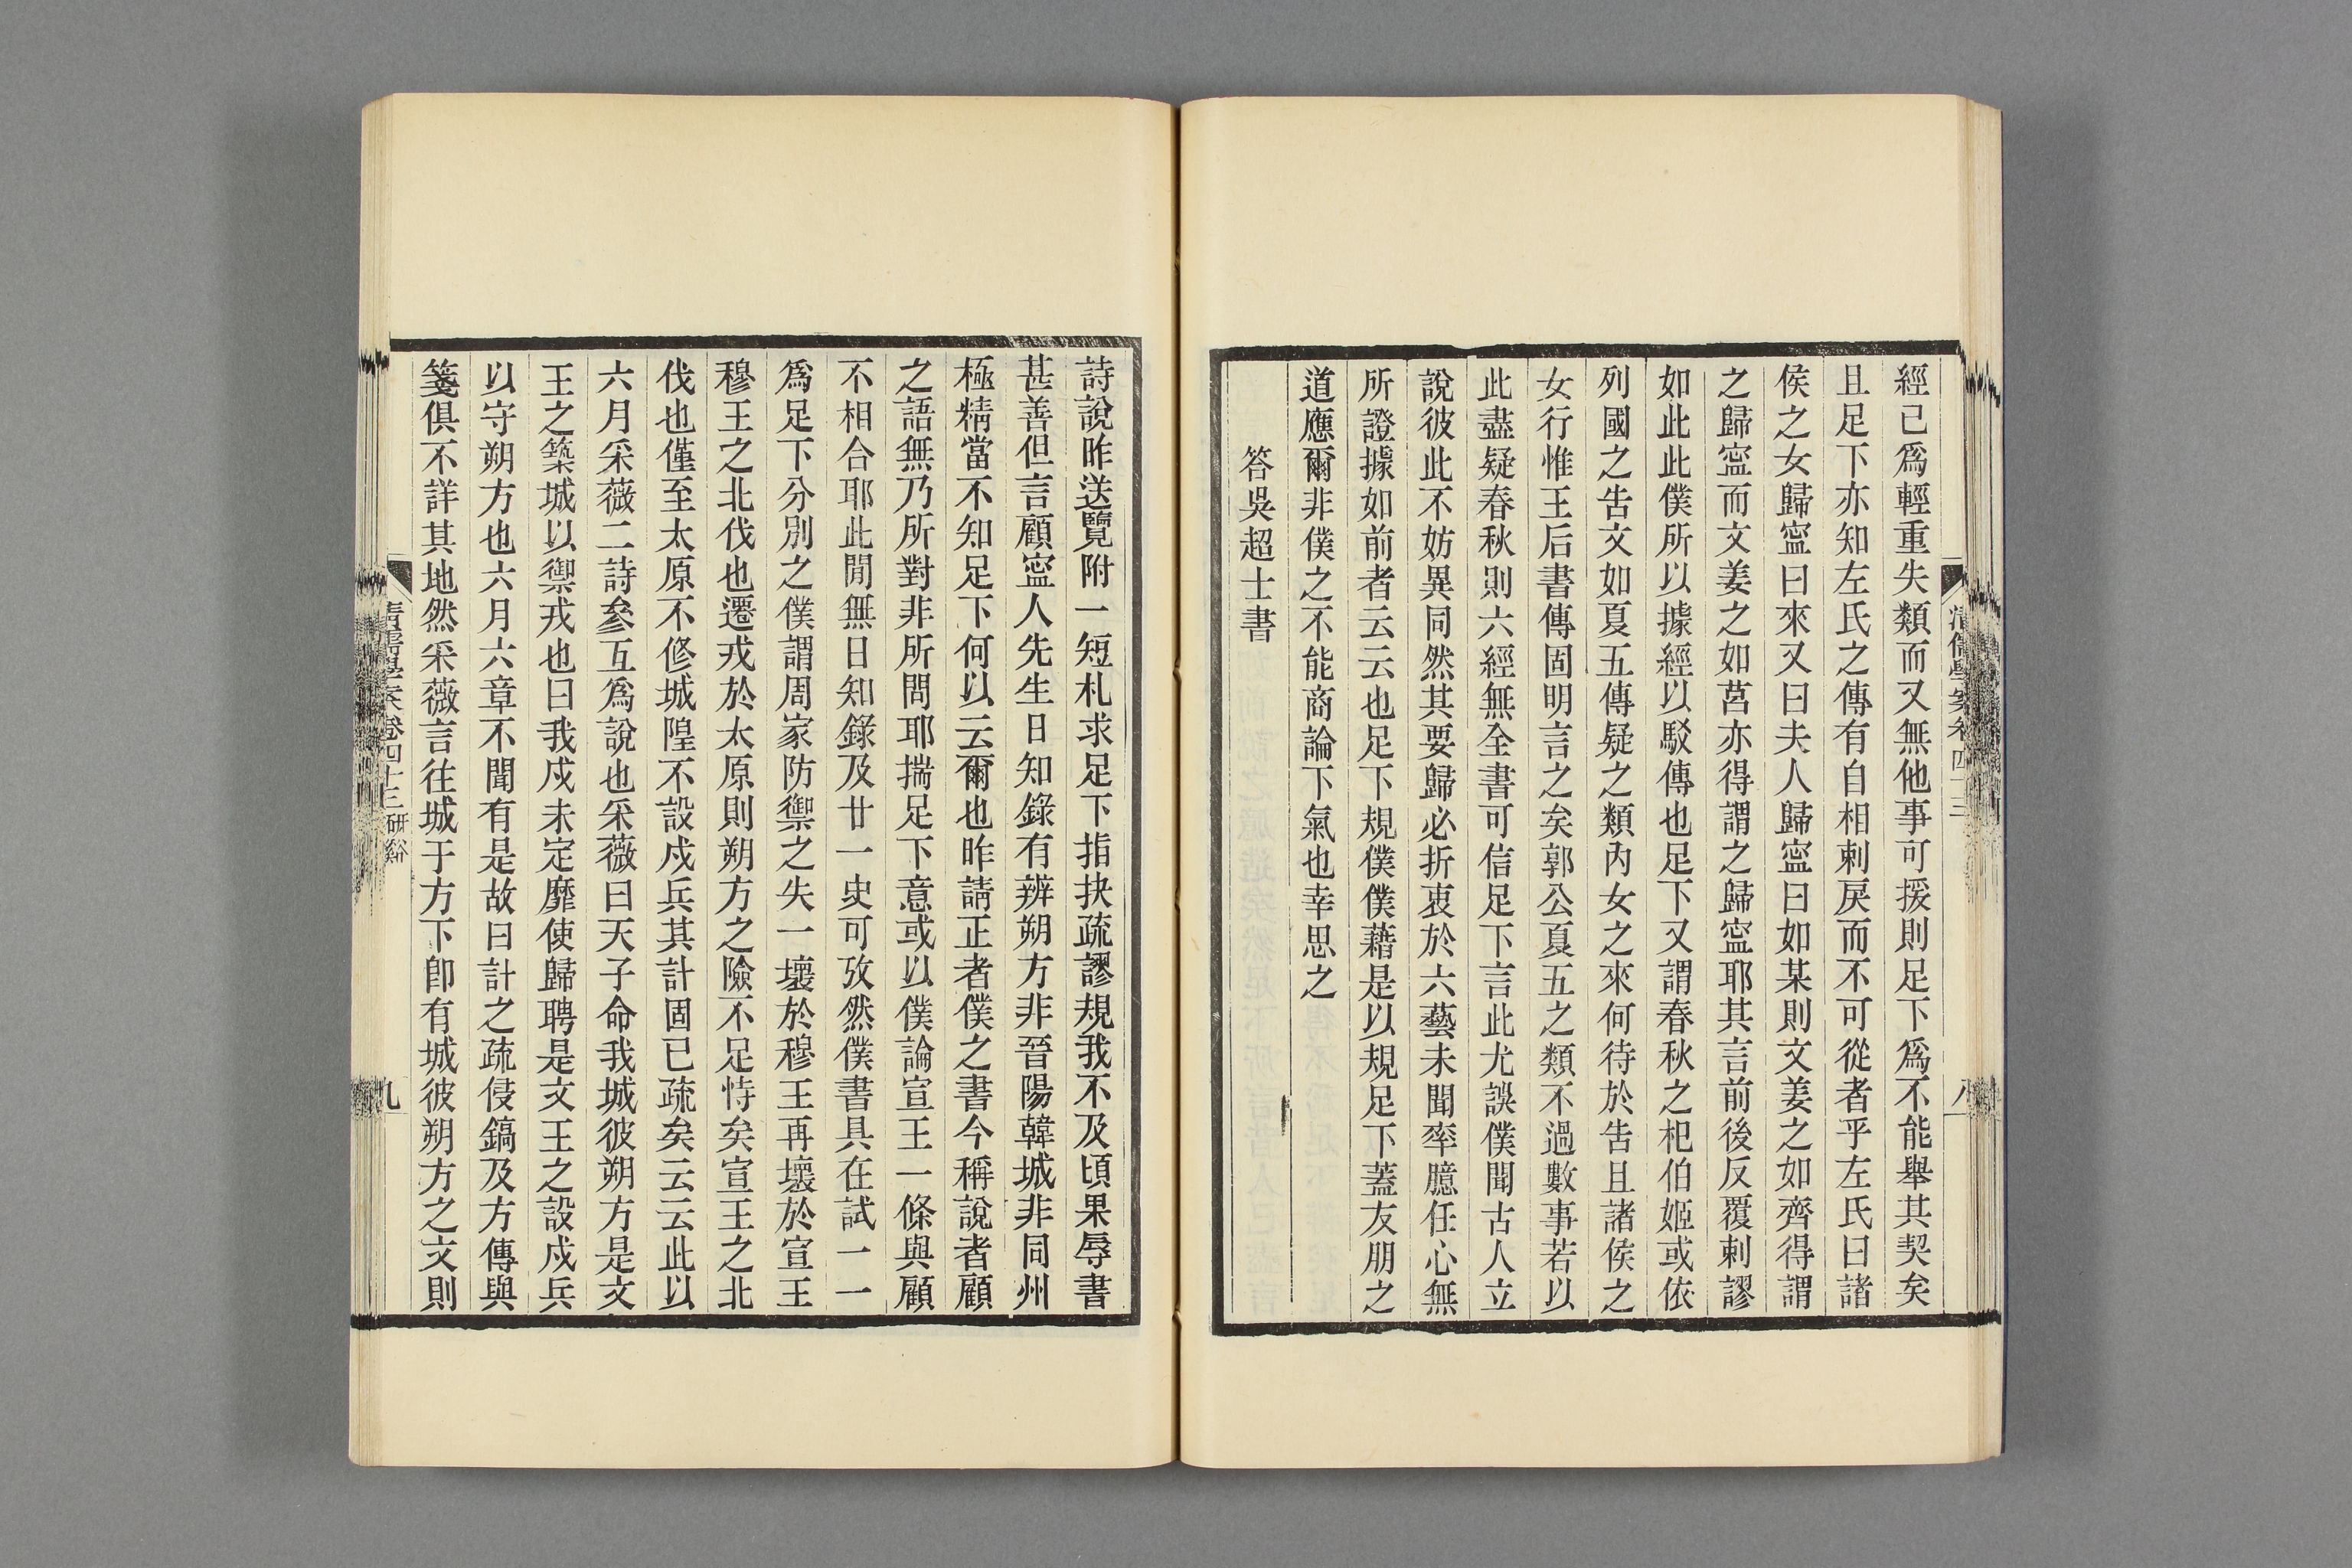 經已爲輕重失類而又無他事可援則足下爲不能舉其契矣
且足下亦知左氏之傳有自相剌戾而不可從者乎左氏曰諸
侯之女歸寍曰來又曰夫人歸寍曰如某則文姜之如齊得謂
之歸寍而文姜之如莒亦得謂之歸寍耶其言前後反覆剌謬
如此此僕所以據經以駁傳也足下又謂春秋之杞伯姬或依
列國之告文如夏五傳疑之類內女之來何待於告且諸侯之
女行惟王后書傳固明言之矣郭公夏五之類不過數事若以
此盡疑春秋則六經無全書可信足下言此尤誤僕聞古人立
說彼此不妨異同然其要歸必折衷於六藝未聞率臆任心無
所證據如前者云云也足下規僕僕藉是以規足下蓋友朋之
道應爾非僕之不能商論下氣也幸思之
答吳超士書
清儒學案卷四十三
八
詩說昨送覽附一短札求足下指抉疏謬規我不及頃果辱書
甚善但言顧寍人先生日知錄有辨朔方非晉陽韓城非同州
極精當不知足下何以云爾也昨請正者僕之書今稱說者顧
之語無乃所對非所問耶揣足下意或以僕論宣王一條與顧
不相合耶此閒無日知錄及廿一史可攷然僕書具在試一一
爲足下分別之僕謂周家防禦之失一壞於穆王再壞於宣王
穆王之北伐也遷戎於太原則朔方之險不足恃矣宣王之北
伐也僅至太原不修城隍不設戍兵其計固已疏矣云云此以
六月采薇二詩參互爲說也采薇曰天子命我城彼朔方是文
王之築城以禦戎也曰我戍未定靡使歸聘是文王之設戍兵
以守朔方也六月六章不聞有是故曰計之疏侵鎬及方傳與
箋俱不詳其地然采薇言往城于方下卽有城彼朔方之文則
清儒學案卷四十三 研谿
九